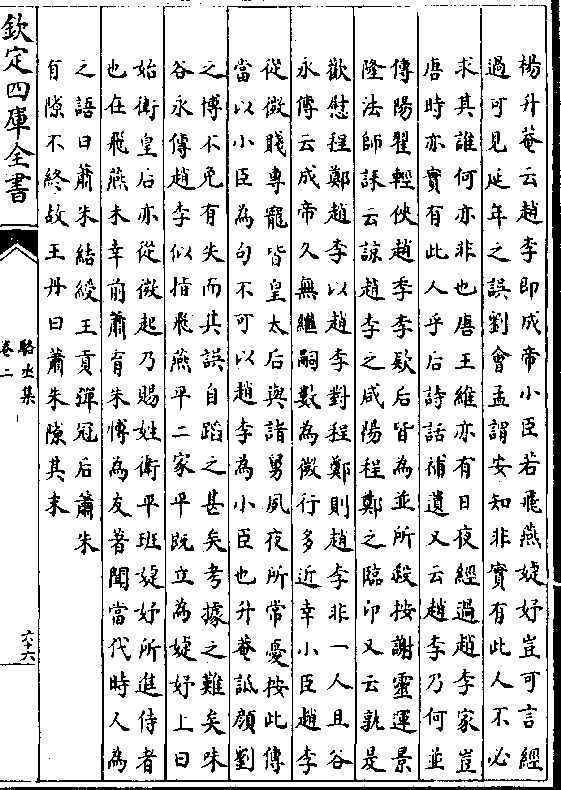 楊升菴云趙李即成帝小臣若飛燕婕妤豈可言經
過可見延年之誤劉會孟謂安知非實有此人不必
求其誰何亦非也唐王維亦有日夜經過趙李家豈
唐時亦實有此人乎后詩話補遺又云趙李乃何並
傳陽翟輕俠趙季李欵后皆為並所殺按謝靈運景
隆法師誄云諒趙李之咸陽程鄭之臨卭又云孰是
歡慰程鄭趙李以趙李對程鄭則趙李非一人且谷
永傳云成帝久無繼嗣數為微行多近幸小臣趙李
從微賤專寵皆皇太后與諸舅夙夜所常憂按此傳
當以小臣為句不可以趙李為小臣也升菴詆顔劉
之博不免有失而其誤自蹈之甚矣考據之難矣味
谷永傳趙李似指飛燕平二家平既立為婕妤上曰
始衛皇后亦從微起乃賜姓衛平班婕妤所進侍者
也在飛燕未幸前蕭育朱愽為友著聞當代時人為
之語曰蕭朱結綬王貢彈冠后蕭朱
有隙不終故王丹曰蕭朱隙其末
欽定四庫全書
駱丞集
卷二
六十六